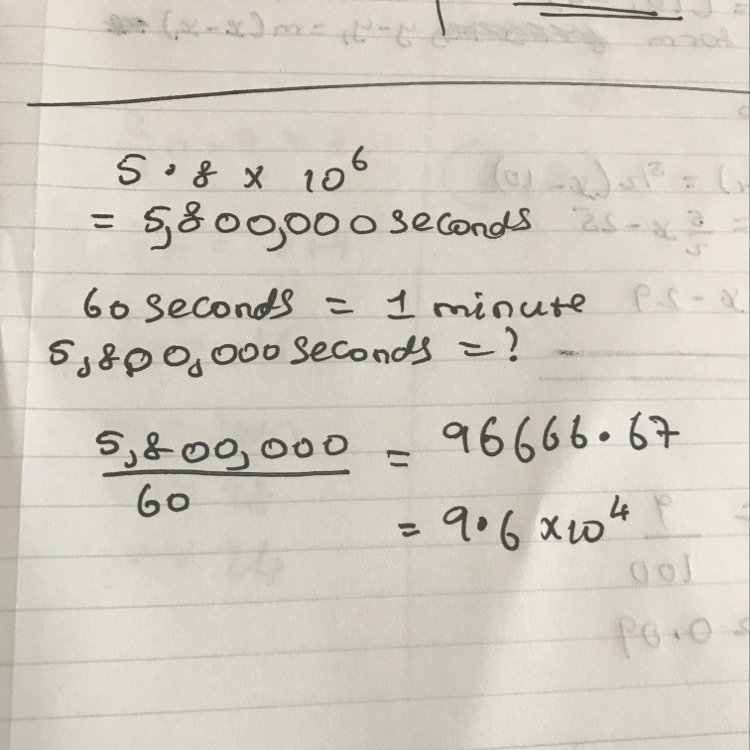 5.8 x 10⁶
= 5,800,000 seconds
60 seconds = 1 minute
5,800,000 seconds = ?
5,800,000 / 60 = 96666.67
= 9.6 x 10⁴